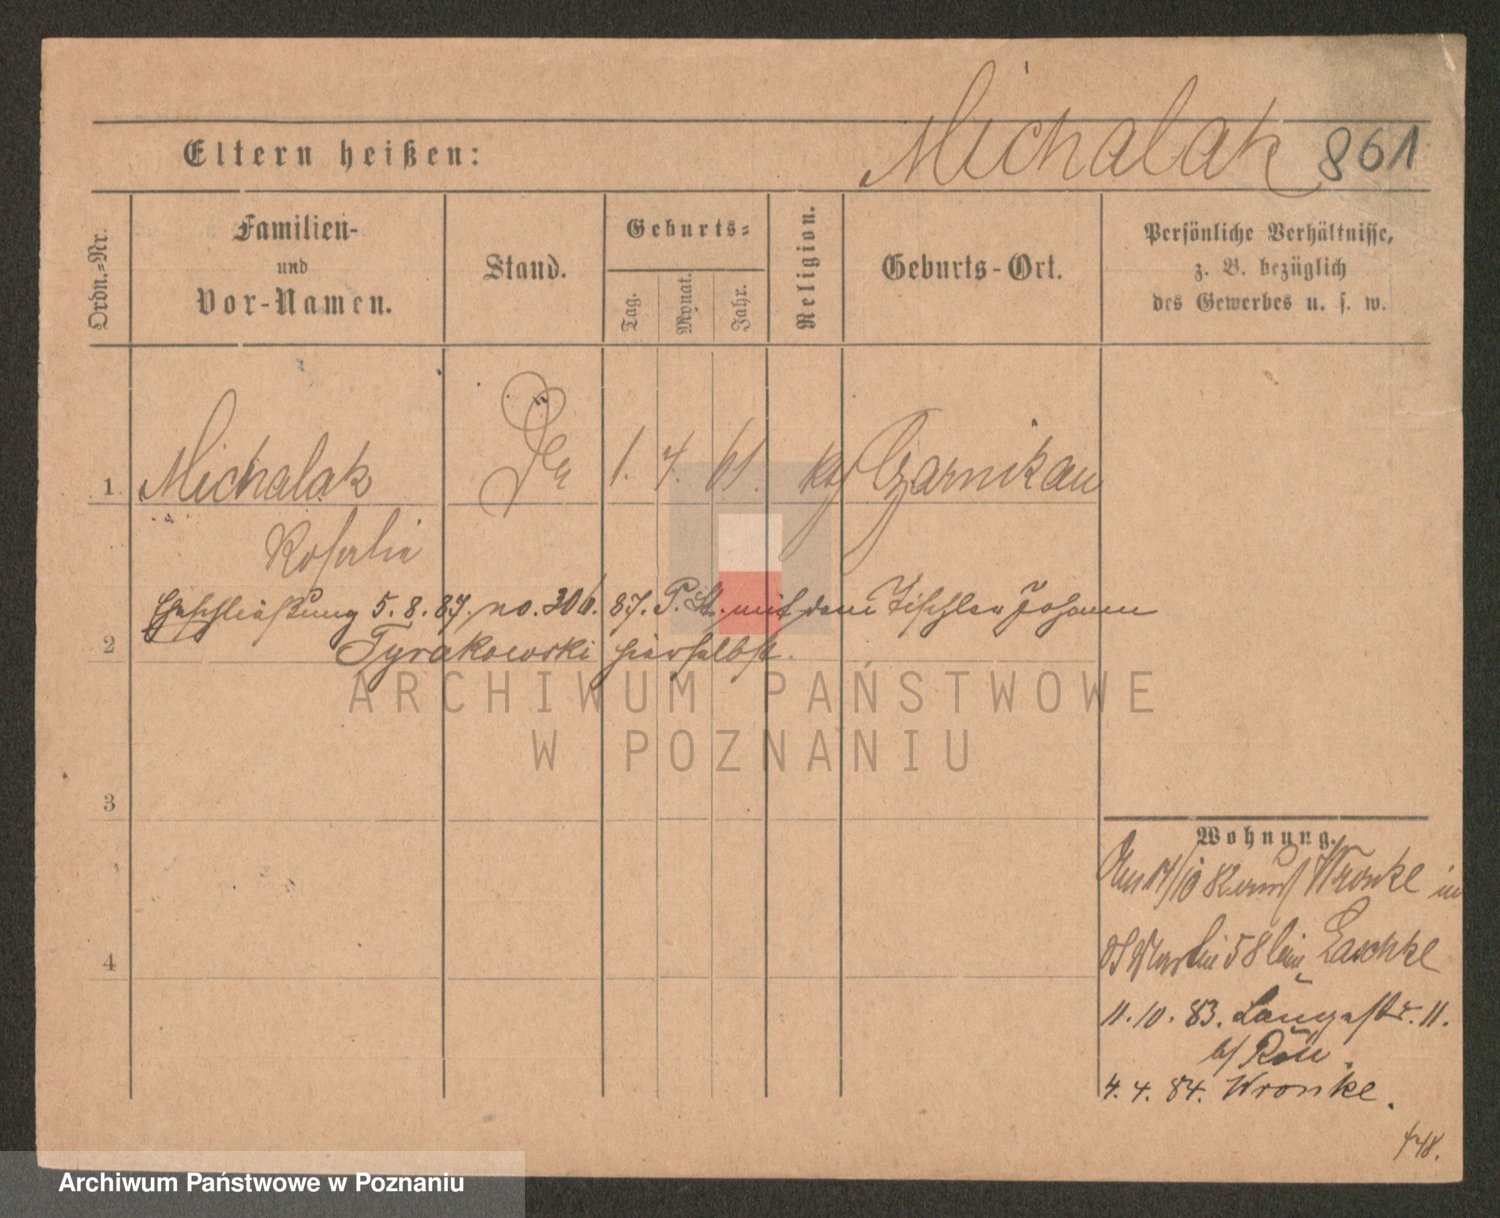 Michalak 861
Eltern heißen:
Ordn.-Nr.
Familien-
und
Vor-Namen.
Stand.
Geburts-
Tag.
Monat.
Jahr.
Religion.
Geburts-Ort.
Persönliche Verhältnisse,
z. B. bezüglich
des Gewerbes u. s. w.
1 Michalak 1. 4. 61. Czarnikau
Rosalie
Eheschließung 5. 8. 87. no. 306. 87. P. St. mit dem Tischler Johann
2 Tyrakowski hierselbst.
ARCHIWUM PAŃSTWOWE
W POZNANIU
3
4
Wohnung.
Am 14/10 82 Wronke in
St Martin 58 bei Laschke
11. 10. 83. Langestr. 11.
b/
4. 4. 84. Wronke.
Archiwum Państwowe w Poznaniu